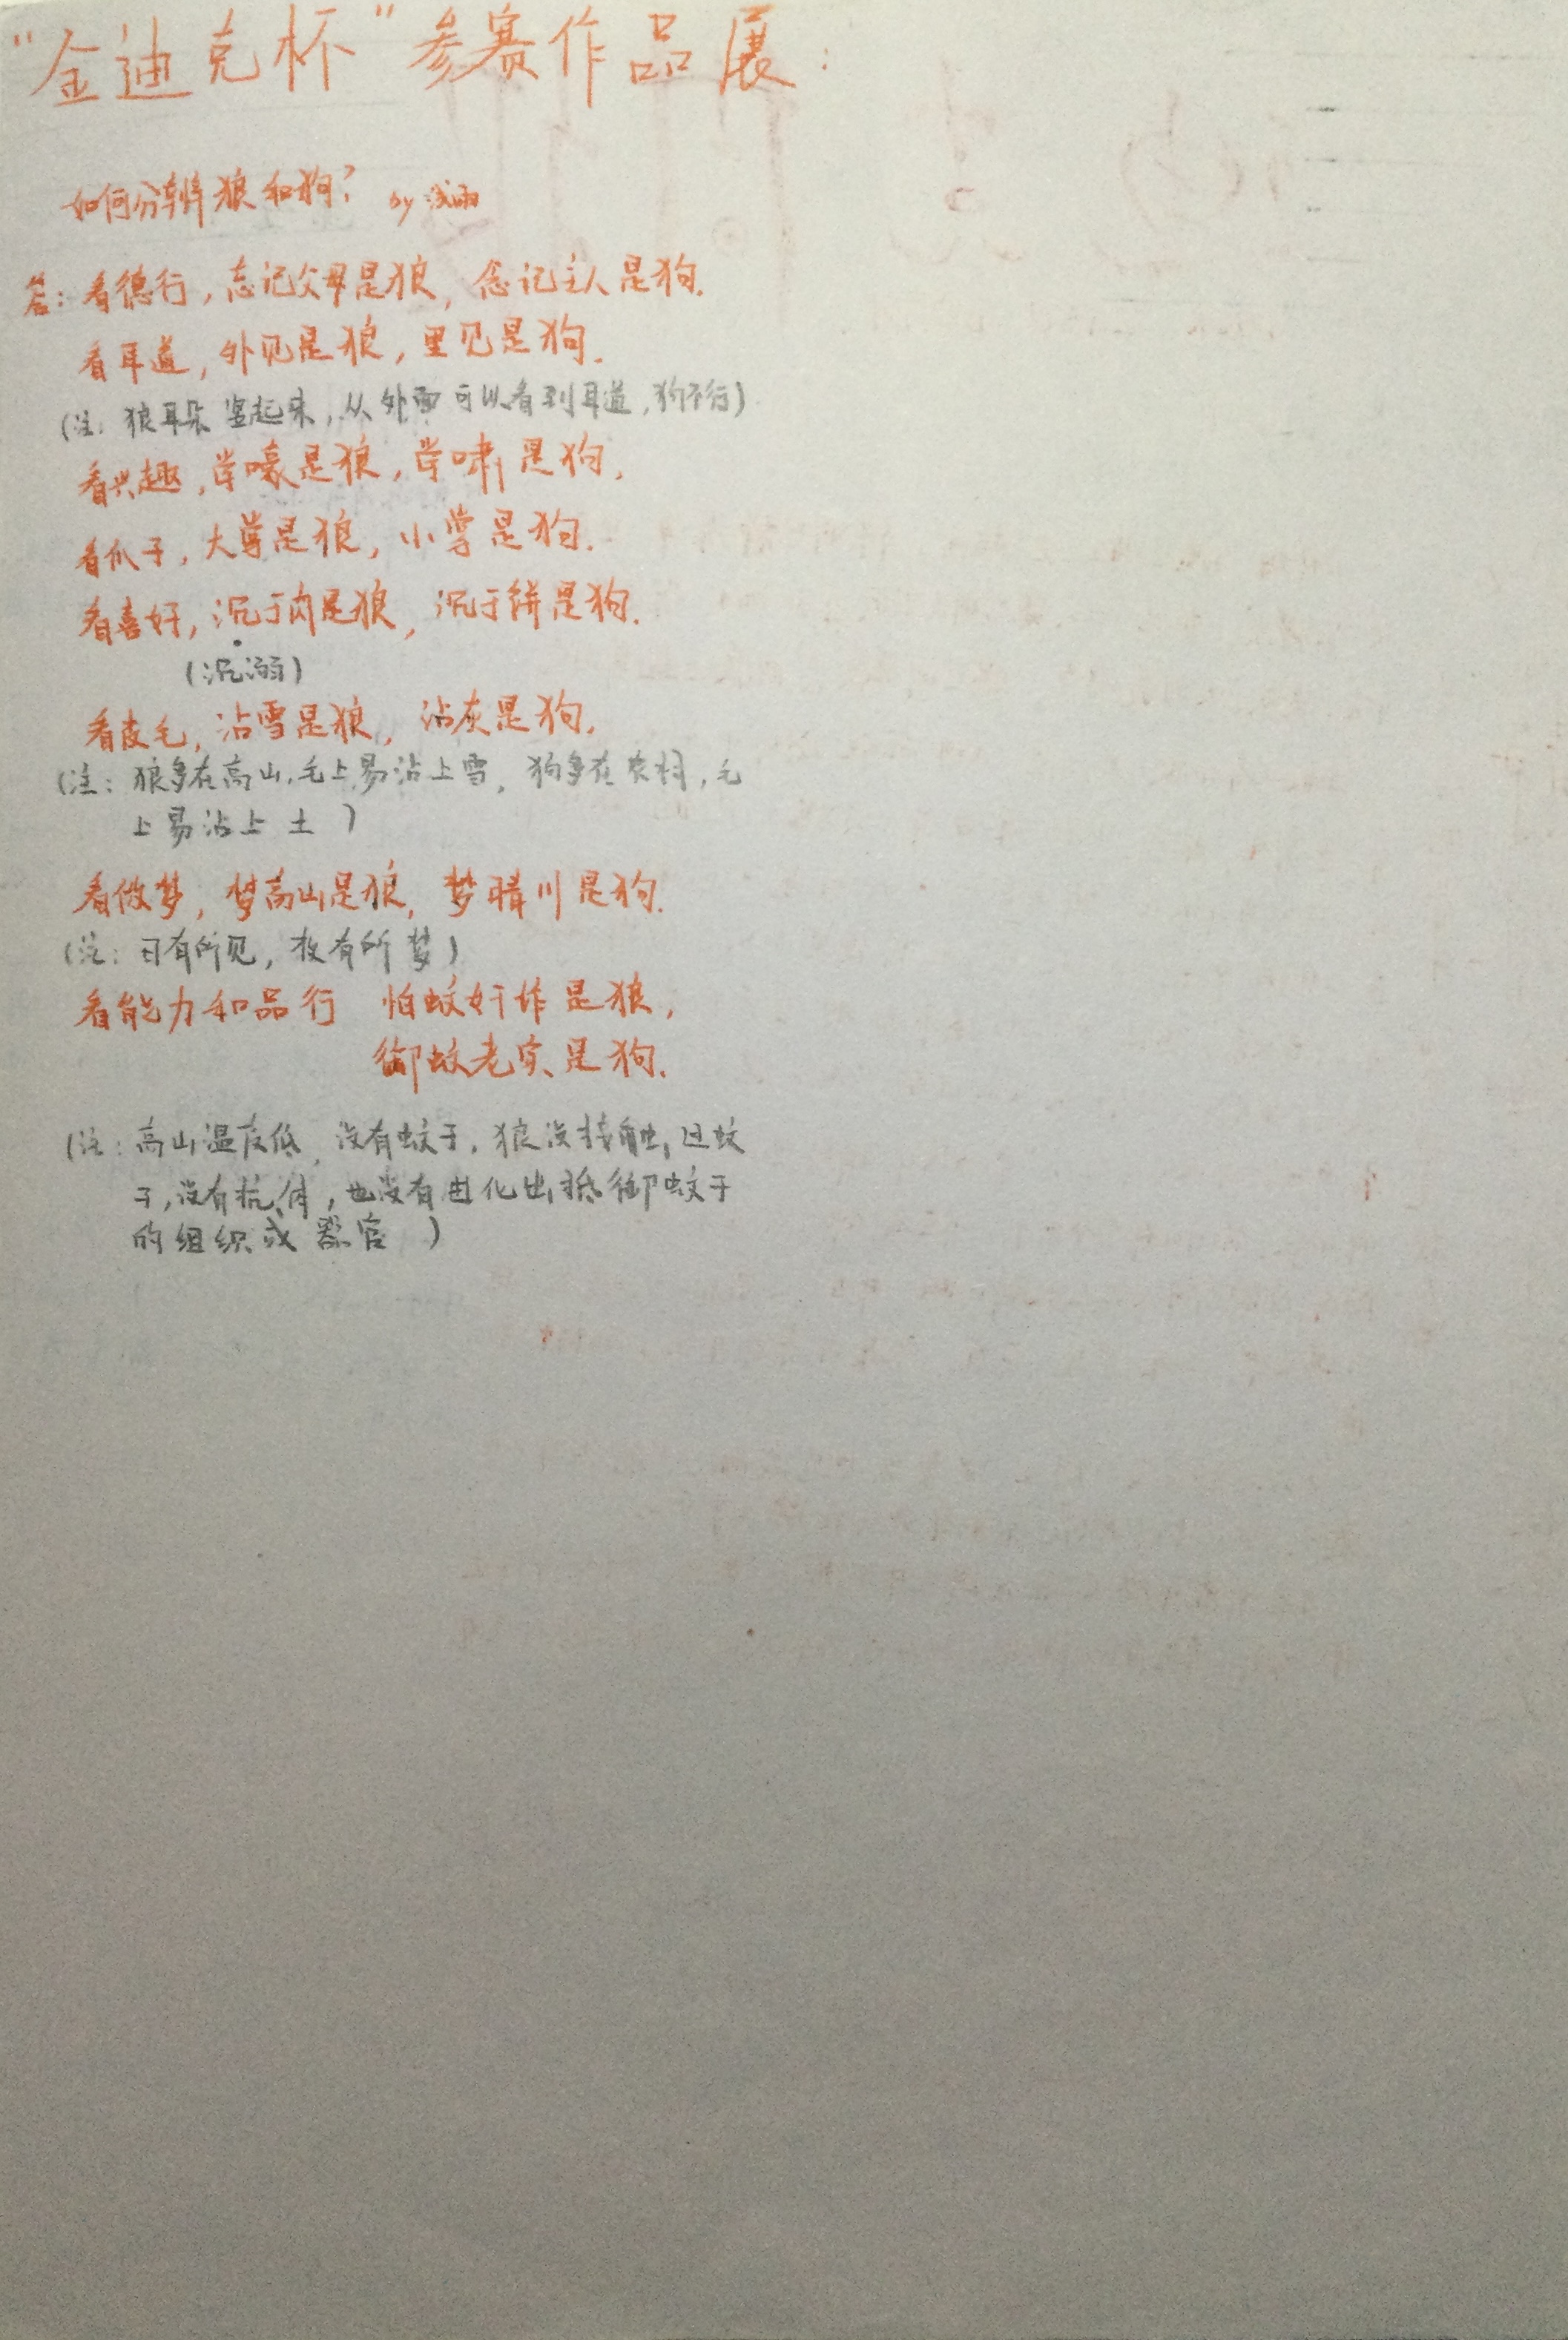 "金迪克杯"参赛作品展：
如何分辨狼和狗? by 浅雨
答：看德行，忘记父母是狼，念记主人是狗.
看耳道，外见是狼，里见是狗.
(注：狼耳朵竖起来，从外面可以看到耳道，狗不行)
看兴趣，学嚎是狼，学啸是狗，
看爪子，大掌是狼，小掌是狗.
看喜好，沉于肉是狼，沉于饼是狗.
(沉溺)
看皮毛，沾雪是狼，沾灰是狗.
(注：狼多在高山，毛上易沾上雪，狗多在农村，毛
上易沾上土 )
看做梦，梦高山是狼，梦晴川是狗.
(注：日有所见，夜有所梦)
看能力和品行 怕蚊奸诈是狼，
御蚊老实是狗.
(注：高山温度低，没有蚊子，狼没接触过蚊
子，没有抗体，也没有进化出抵御蚊子
的组织或器官 )